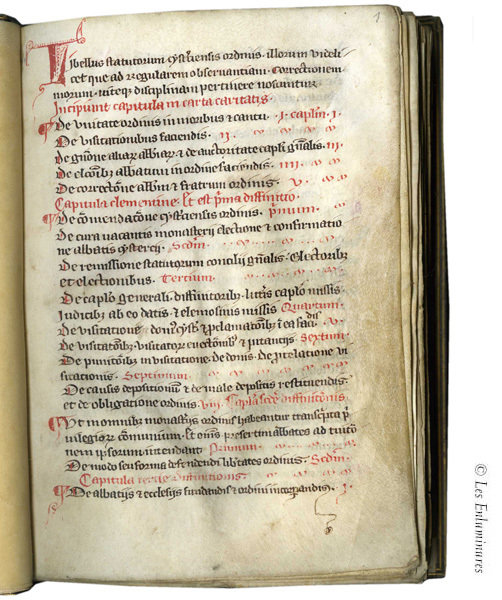 1
Libellus statutorum cysterciensis ordinis. illorum videli
cet que ad regularem observantiam. Correctionem
morum. vite disciplinam pertinere noscuntur
Incipiunt capitula in carta caritatis.
De unitate ordinis in moribus et cantu. i. caplm. i.
De visitationibus faciendis. ii
De gnone aliar abbiar et de auctoritate capli gnalis. iii
De elconibz abbatum in ordine faciendis. iiii
De correctone abbm et fratrum ordinis. v.
Capitula clementine. Et est pma diffinitio.
De comendatone cystciensis ordinis. pmum.
De cura vacantis monasterij electione et confirmatio
ne abbatis cystercij. Scdm.
De remissione statutorum concilij gnalis. Electoribz
et electionibus. Tercium.
De caplo generali. diffinitoribz. littis caplo missis.
Judicibz ab eo datis. et elemosinis missis Quartum.
dis
De visitatone . et pclamatonibz i ea faci v.
De visitatoribz. visitator et pitanciis. Sextum.
De punitonibz in visitatione. de donis. de pelatione vi
sitationis. Septimum
De causis depositionum et de male depositis restituendis.
et de obligatione ordinis. viii. Capla scde diffinitionis.
Ut in omnibz monastijs ordinis habeantur transcpta pi
vilegiorum communium. Et omnes presertim abbates ad tuito
nem ipsorum intendant Primum.
De modo seu forma defendendi libtates ordinis. Scdm.
Capitula tercie diffinitionis.
De abbatijs et ecclesijs fundandis et ordini incorporandis. i.
© Les Enluminures